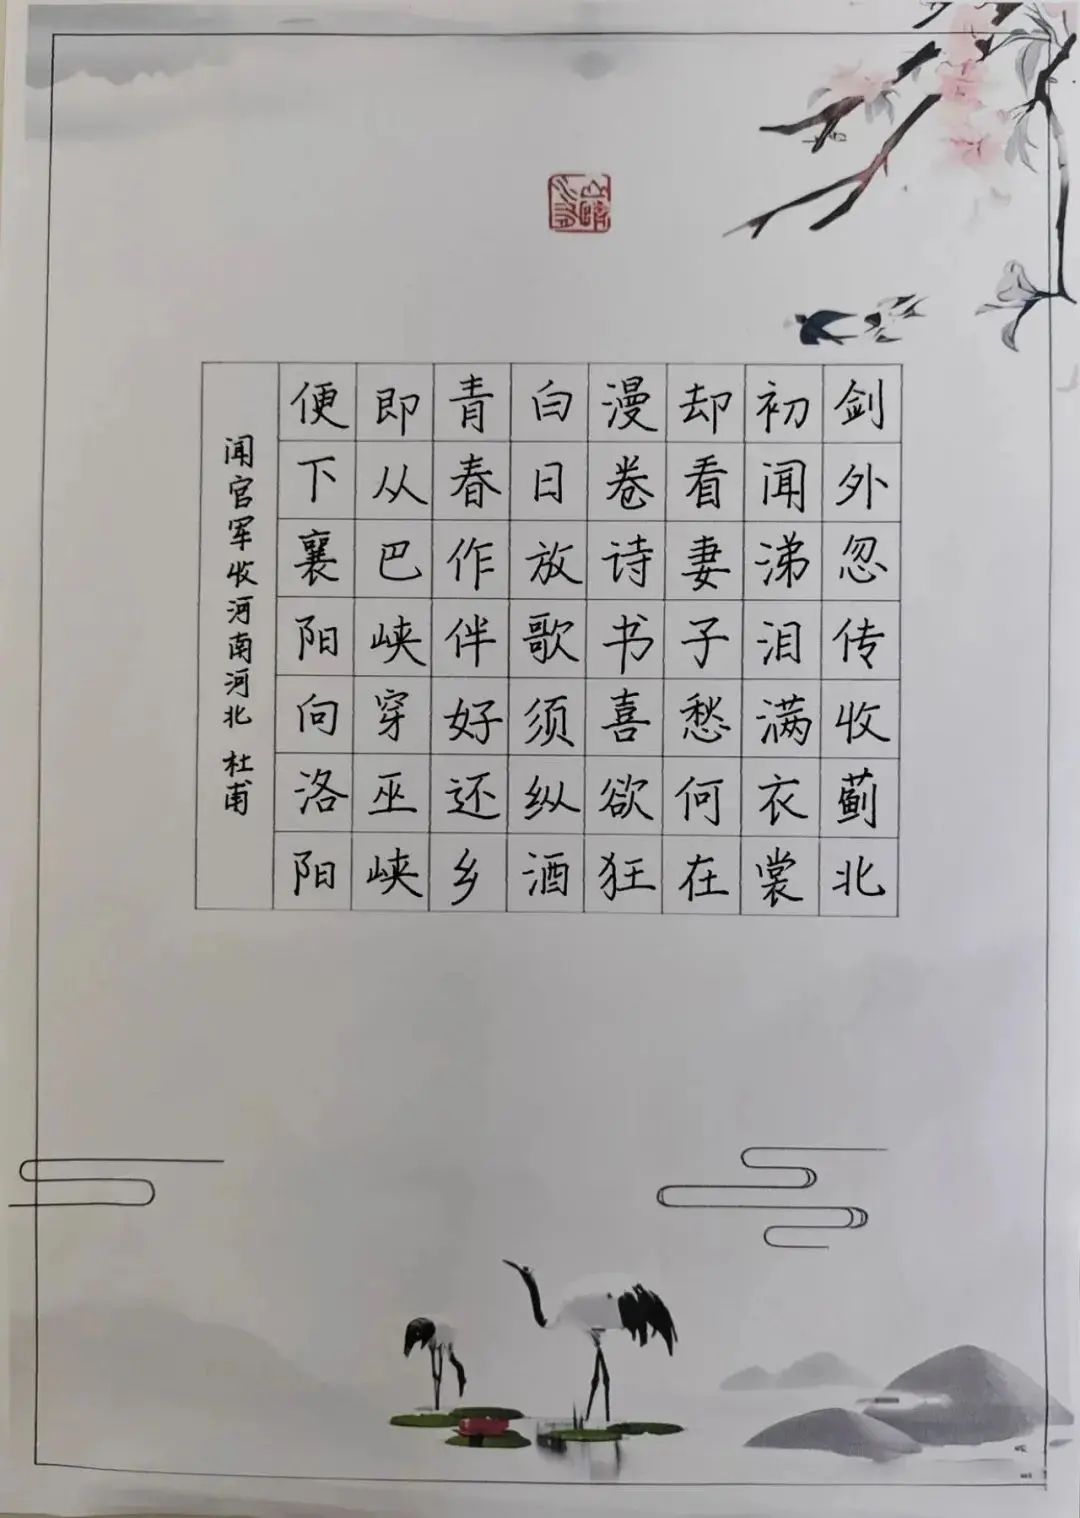 剑外忽传收蓟北
初闻涕泪满衣裳
却看妻子愁何在
漫卷诗书喜欲狂
白日放歌须纵酒
青春作伴好还乡
即从巴峡穿巫峡
便下襄阳向洛阳
闻官军收河南河北 杜甫